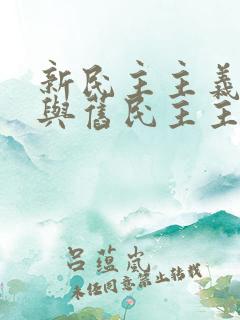 新民主主義
與舊民主主
呂蘊嵐
未任同意禁止轉載